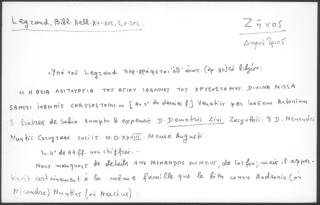 Legrand, Bibl. Hell. XV-XVI,
Ζῆνος
Δημήτριος
Ὑπὸ τοῦ Legrand περιγράφεται
Η ΘΕΙΑ ΛΕΙΤΟΥΡΓΙΑ ΤΟΥ ΑΓΙΟΥ ΙΩΑΝΝΟΥ ΤΟΥ ΧΡΥΣΟΣΤΟΜΟΥ. DIVINA MISSA
SANCTI IOANNIS CHRYSOSTOMI Venetiis per Antonium
fratres de Sabio sumptu & expensis D. Demetrii Zini Zacynthii: & D. Menandri
Nuntii Corcyraei socii. M.D.XXVIII. Mense Augusti.
In 4º de 44 ff. non chiffrés.
Nous manquons de détails sur MENANDROS NUNTIUS, de Corfou, mais il appar-
tenait certainement à la même famille que le bien connu Andronic (ou
Nicandre) Nuntius (ou Nuccius).